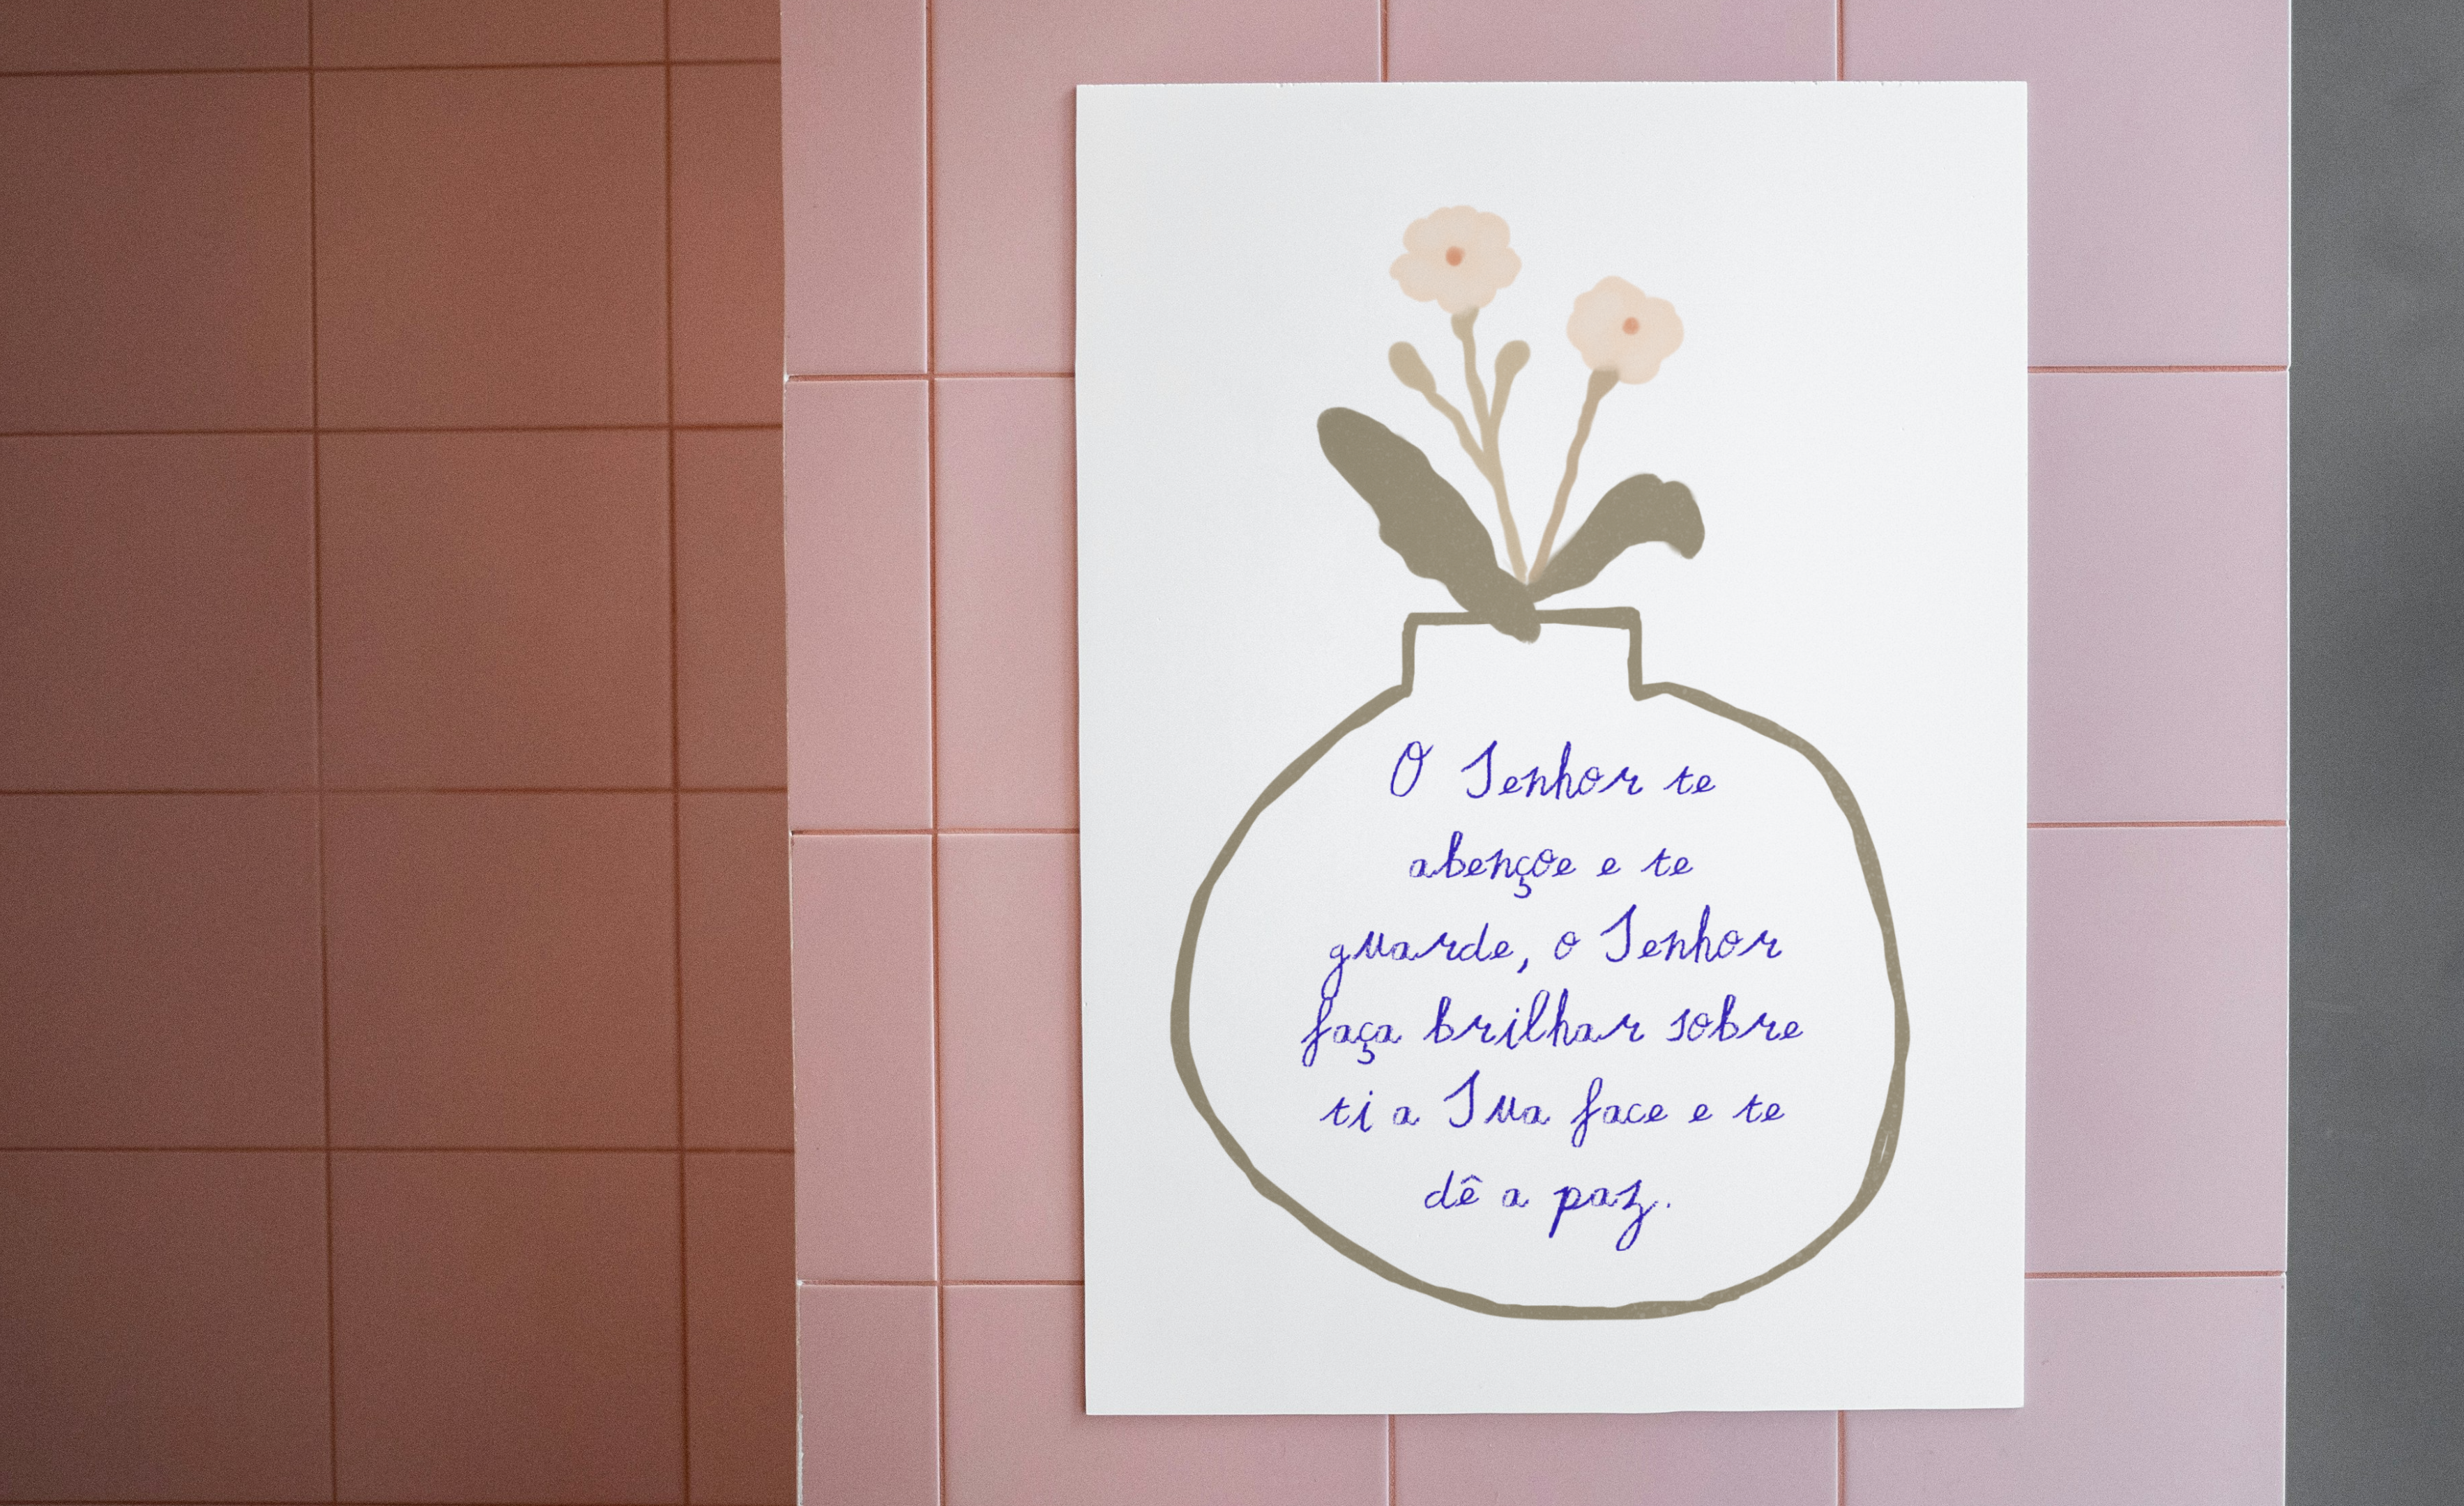 O Senhor te
abençoe e te
guarde, o Senhor
faça brilhar sobre
ti a Sua face e te
dê a paz.